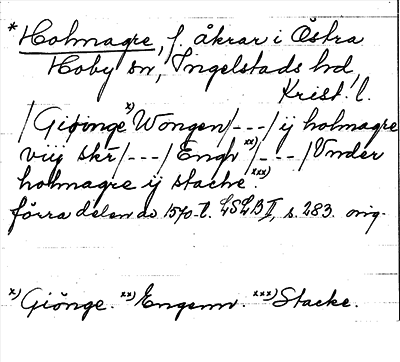 * Holmagre, f. åkrar i Östra
Hoby sn, Ingelstads hd,
Krist. l.
/Giöinge x) Wongen/---/ij holmagre
viij skr/---/Engh xx)/---/Vnder
holmagre ij stache. xxx)
förra delen av 1570-t. LSLB II, s. 283. orig.
x) Giönge. xx) Engenn. xxx) Stacke.